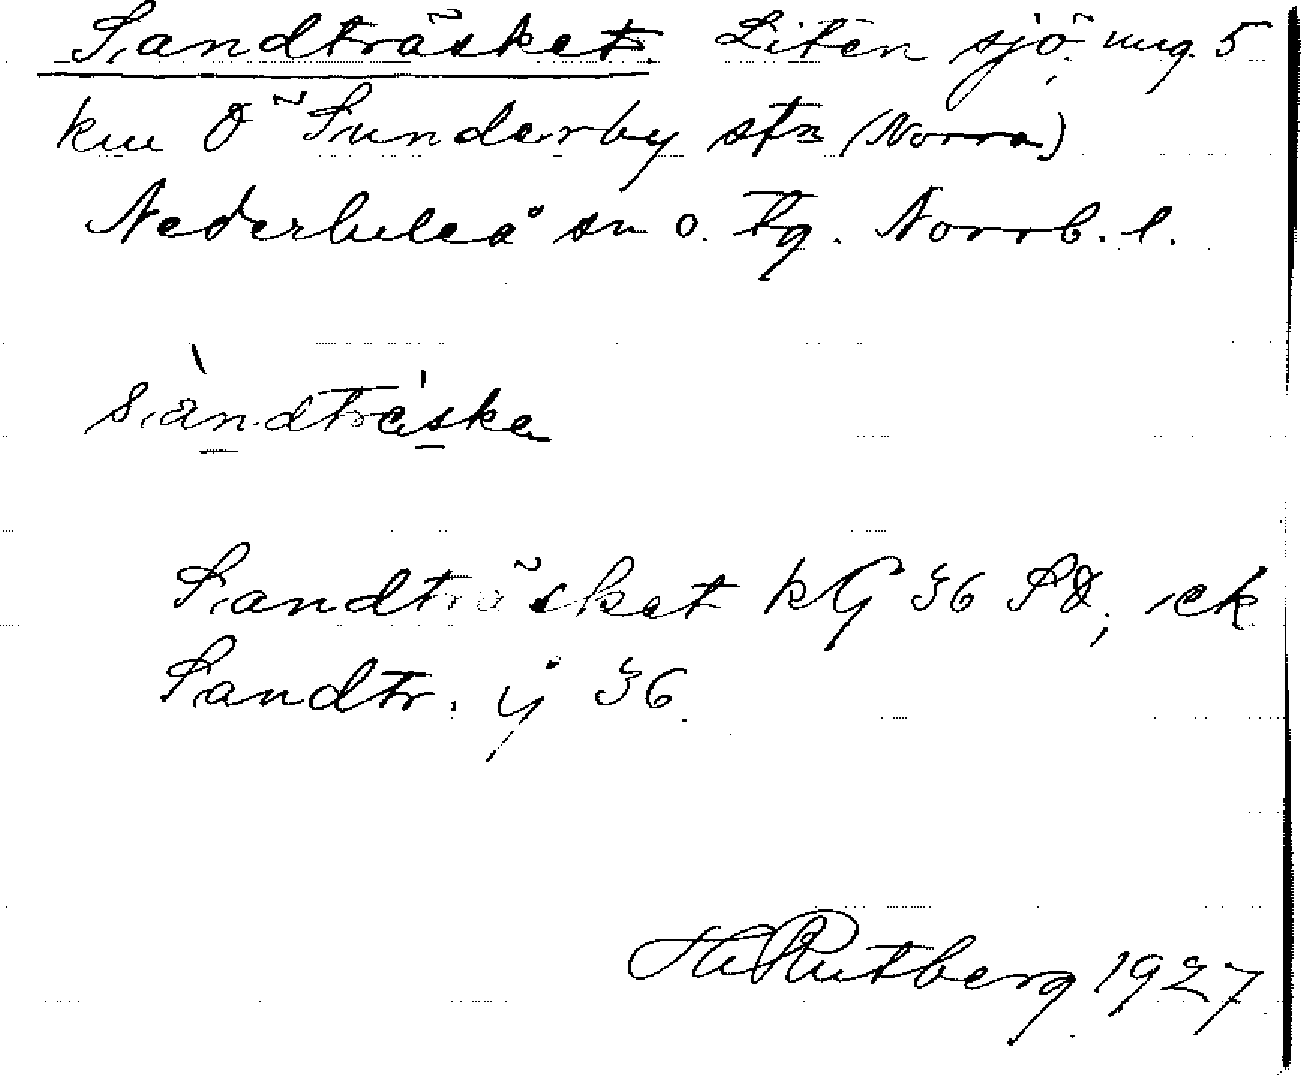 Sandträsket. Liten sjö ung. 5
km Ö Sunderby stn (Norra)
Nederluleå sn o. tg. Norrb. l.
sàndtrǽska
Sandträsket kG 36 SÖ, ek
Sandtr. ij 36.
H Rutberg 1927